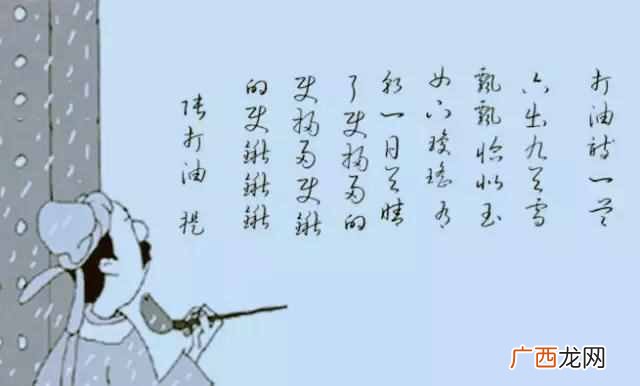 打油诗一首
六出九天雪
飘飘恰似玉
女下琼瑶有
朝一日天晴
了使扫帚的
使扫帚使锹
的使锹锹锹
张打油 提
广西龙网